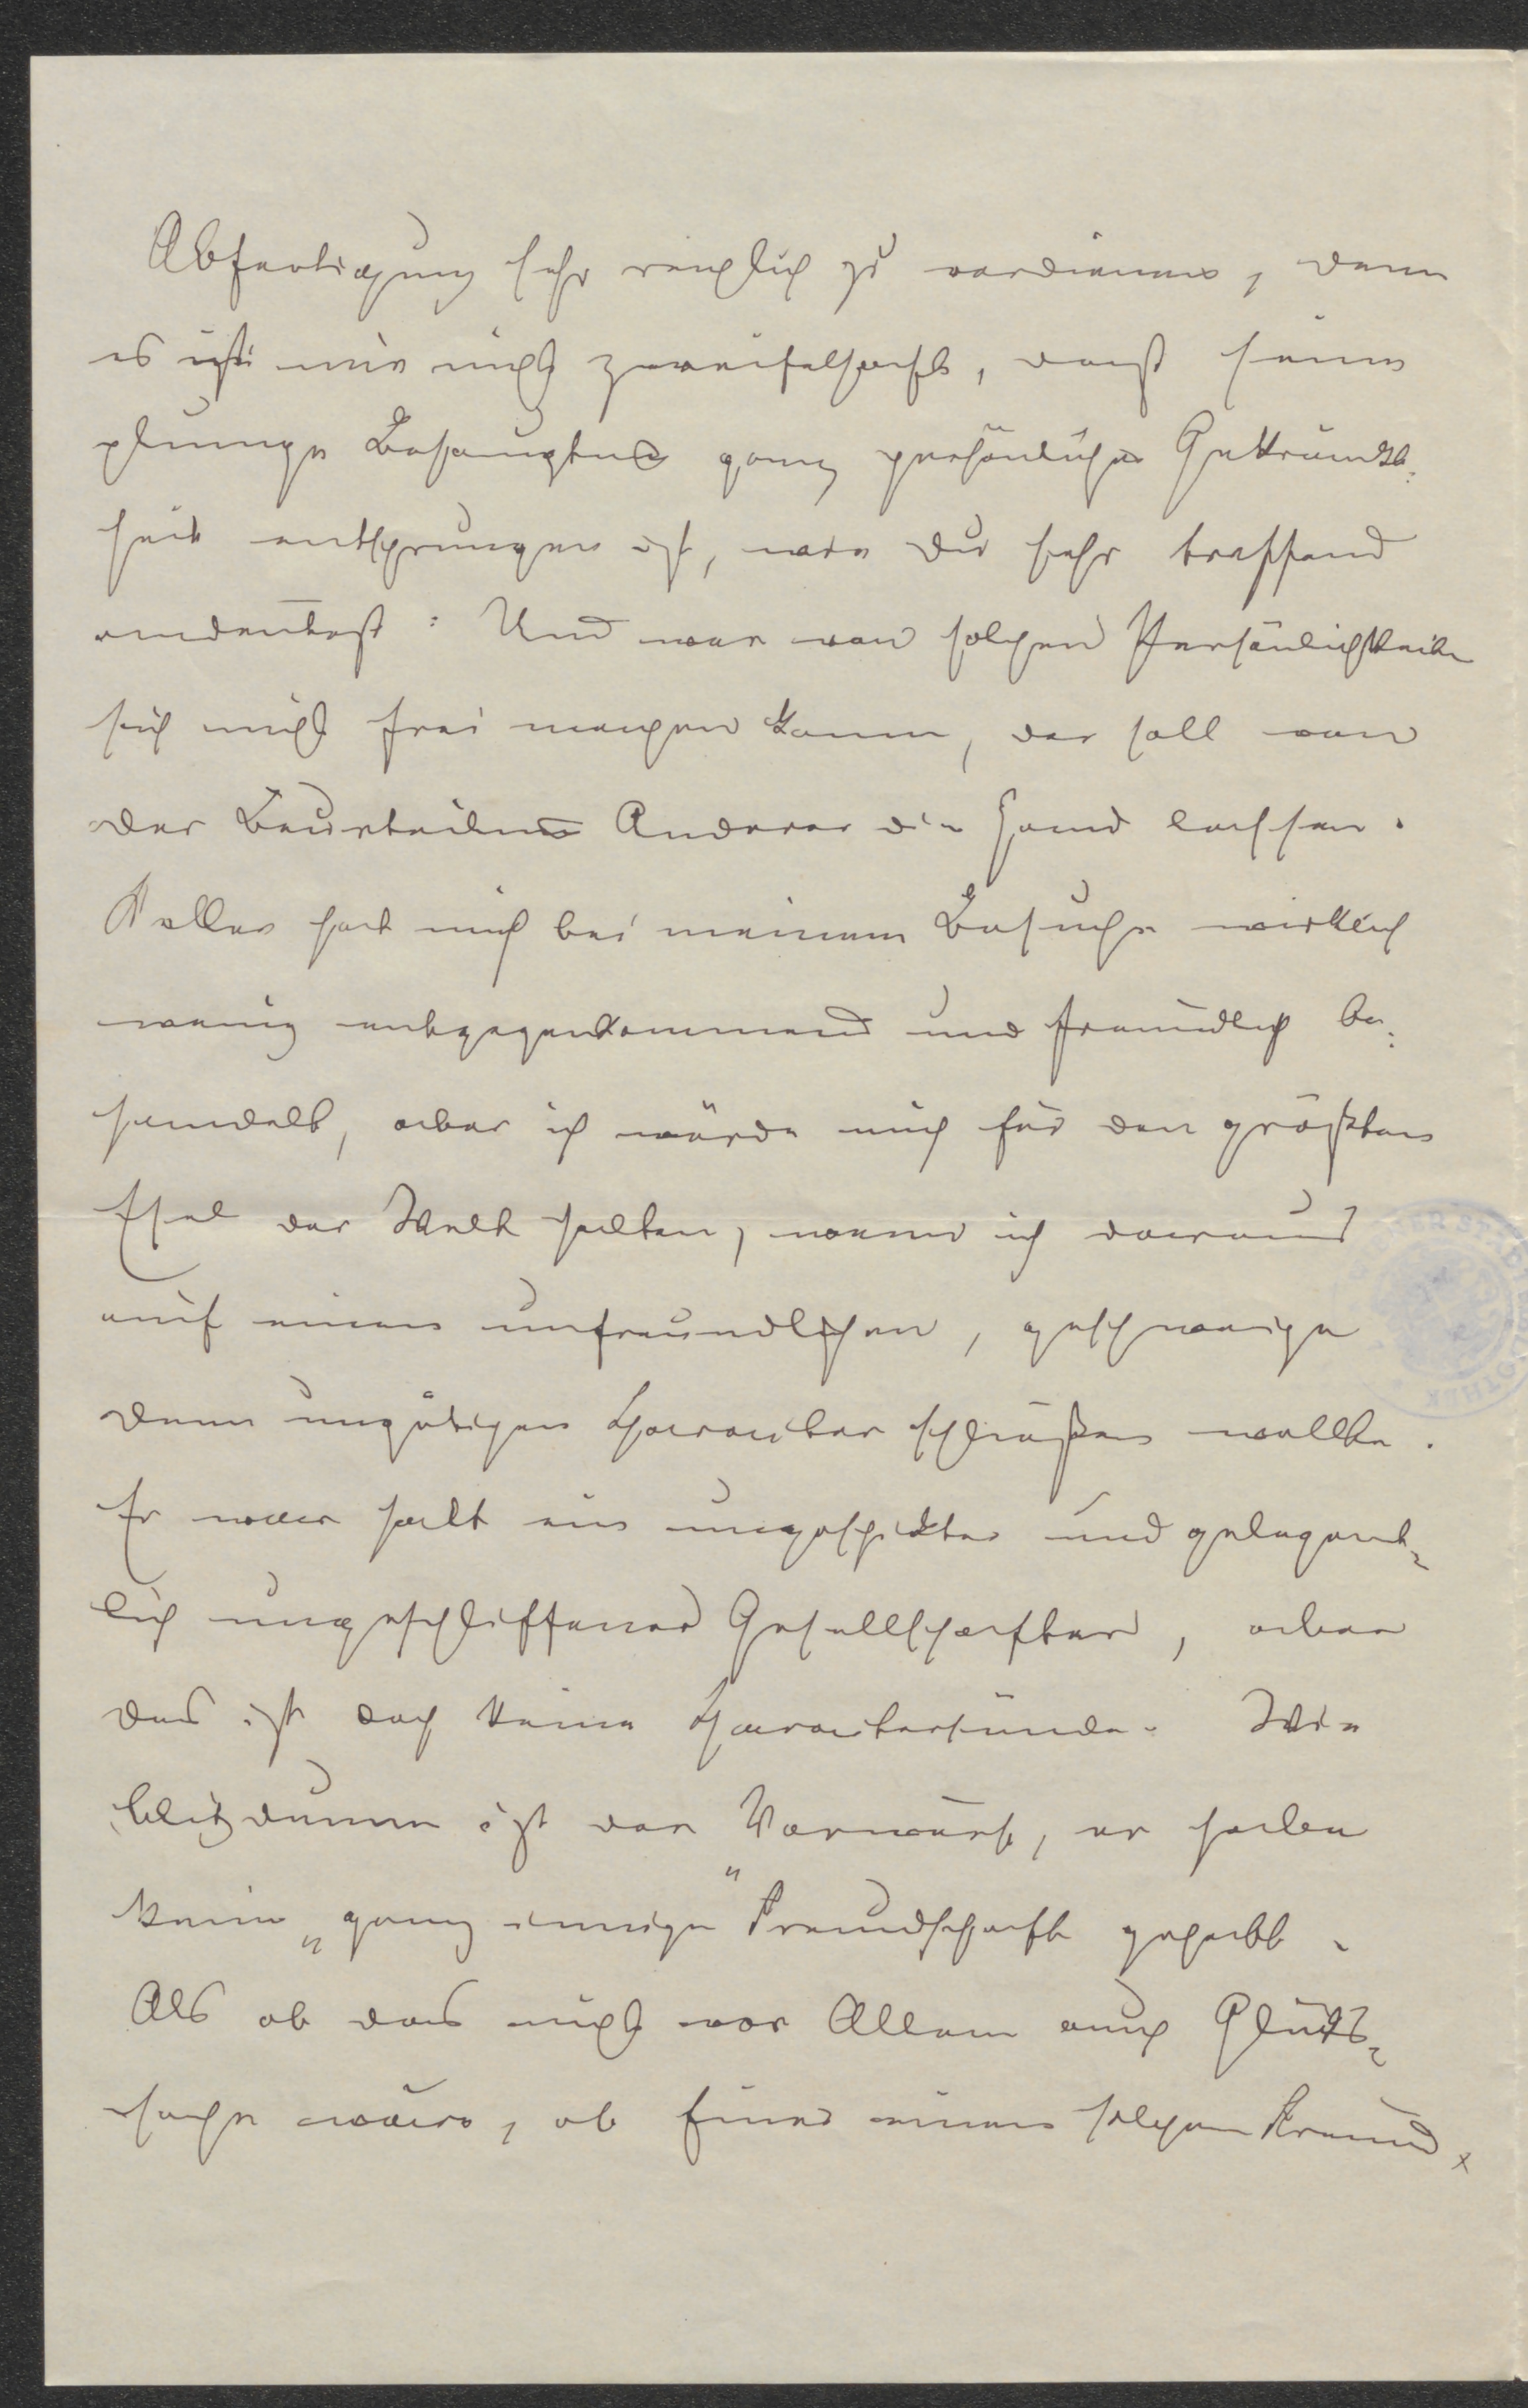 Abfertigung sehr reichlich zu verdienen, denn
es ist mir nicht zweifelhaft, daß seine
plumpe Behauptung ganz persönlicher Gekränkt-
heit entsprungen ist, wie Du sehr treffend
andeutest: Und wer von solchen Persönlichkeiten
sich nicht frei machen kann, der soll von
der Beurteilung Anderer die Hand lassen.
Keller hat mich bei meinem Besuche wirklich
wenig entgegenkommend und freundlich be-
handelt, aber ich würde mich für den größten
Esel der Welt halten, wenn ich daraus
auf einen unfreundlichen, geschweige
denn ungütigen Charakter schließen wollte.
Er war halt ein ungeschickter und gelegent-
lich ungeschliffener Gesellschafter, aber
das ist doch keine Charaktersünde. Wie
blitzdumm ist der Vorwurf, er habe
keine „ganz innige" Freundschaft gehabt.
Als ob das nicht vor Allem auch Glücks-
sache wäre, ob Einer einen solchen Freund